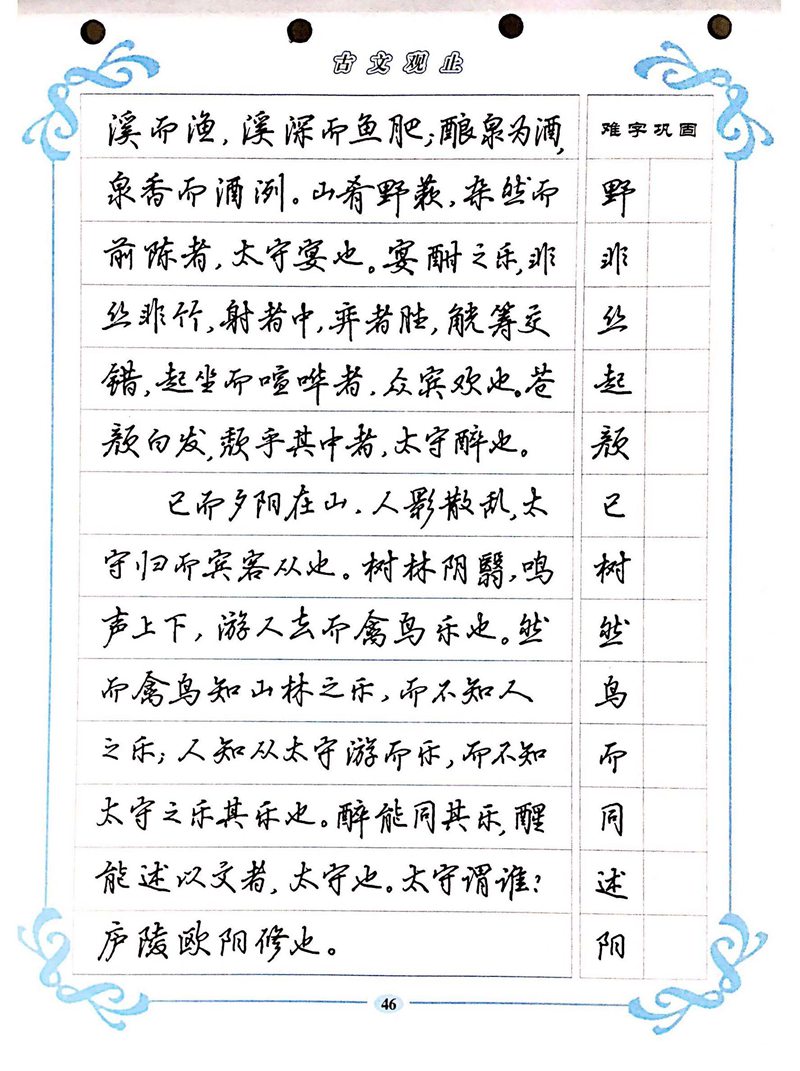 古文观止
溪而渔，溪深而鱼肥；酿泉为酒，
泉香而酒洌。山肴野蔌，杂然而
前陈者，太守宴也。宴酣之乐，非
丝非竹，射者中，弈者胜，觥筹交
错，起坐而喧哗者，众宾欢也。苍
颜白发，颓乎其中者，太守醉也。
已而夕阳在山，人影散乱，太
守归而宾客从也。树林阴翳，鸣
声上下，游人去而禽鸟乐也。然
而禽鸟知山林之乐，而不知人
之乐；人知从太守游而乐，而不知
太守之乐其乐也。醉能同其乐，醒
能述以文者，太守也。太守谓谁？
庐陵欧阳修也。
难字巩固
野
非
丝
起
颜
已
树
然
鸟
而
同
述
阳
46